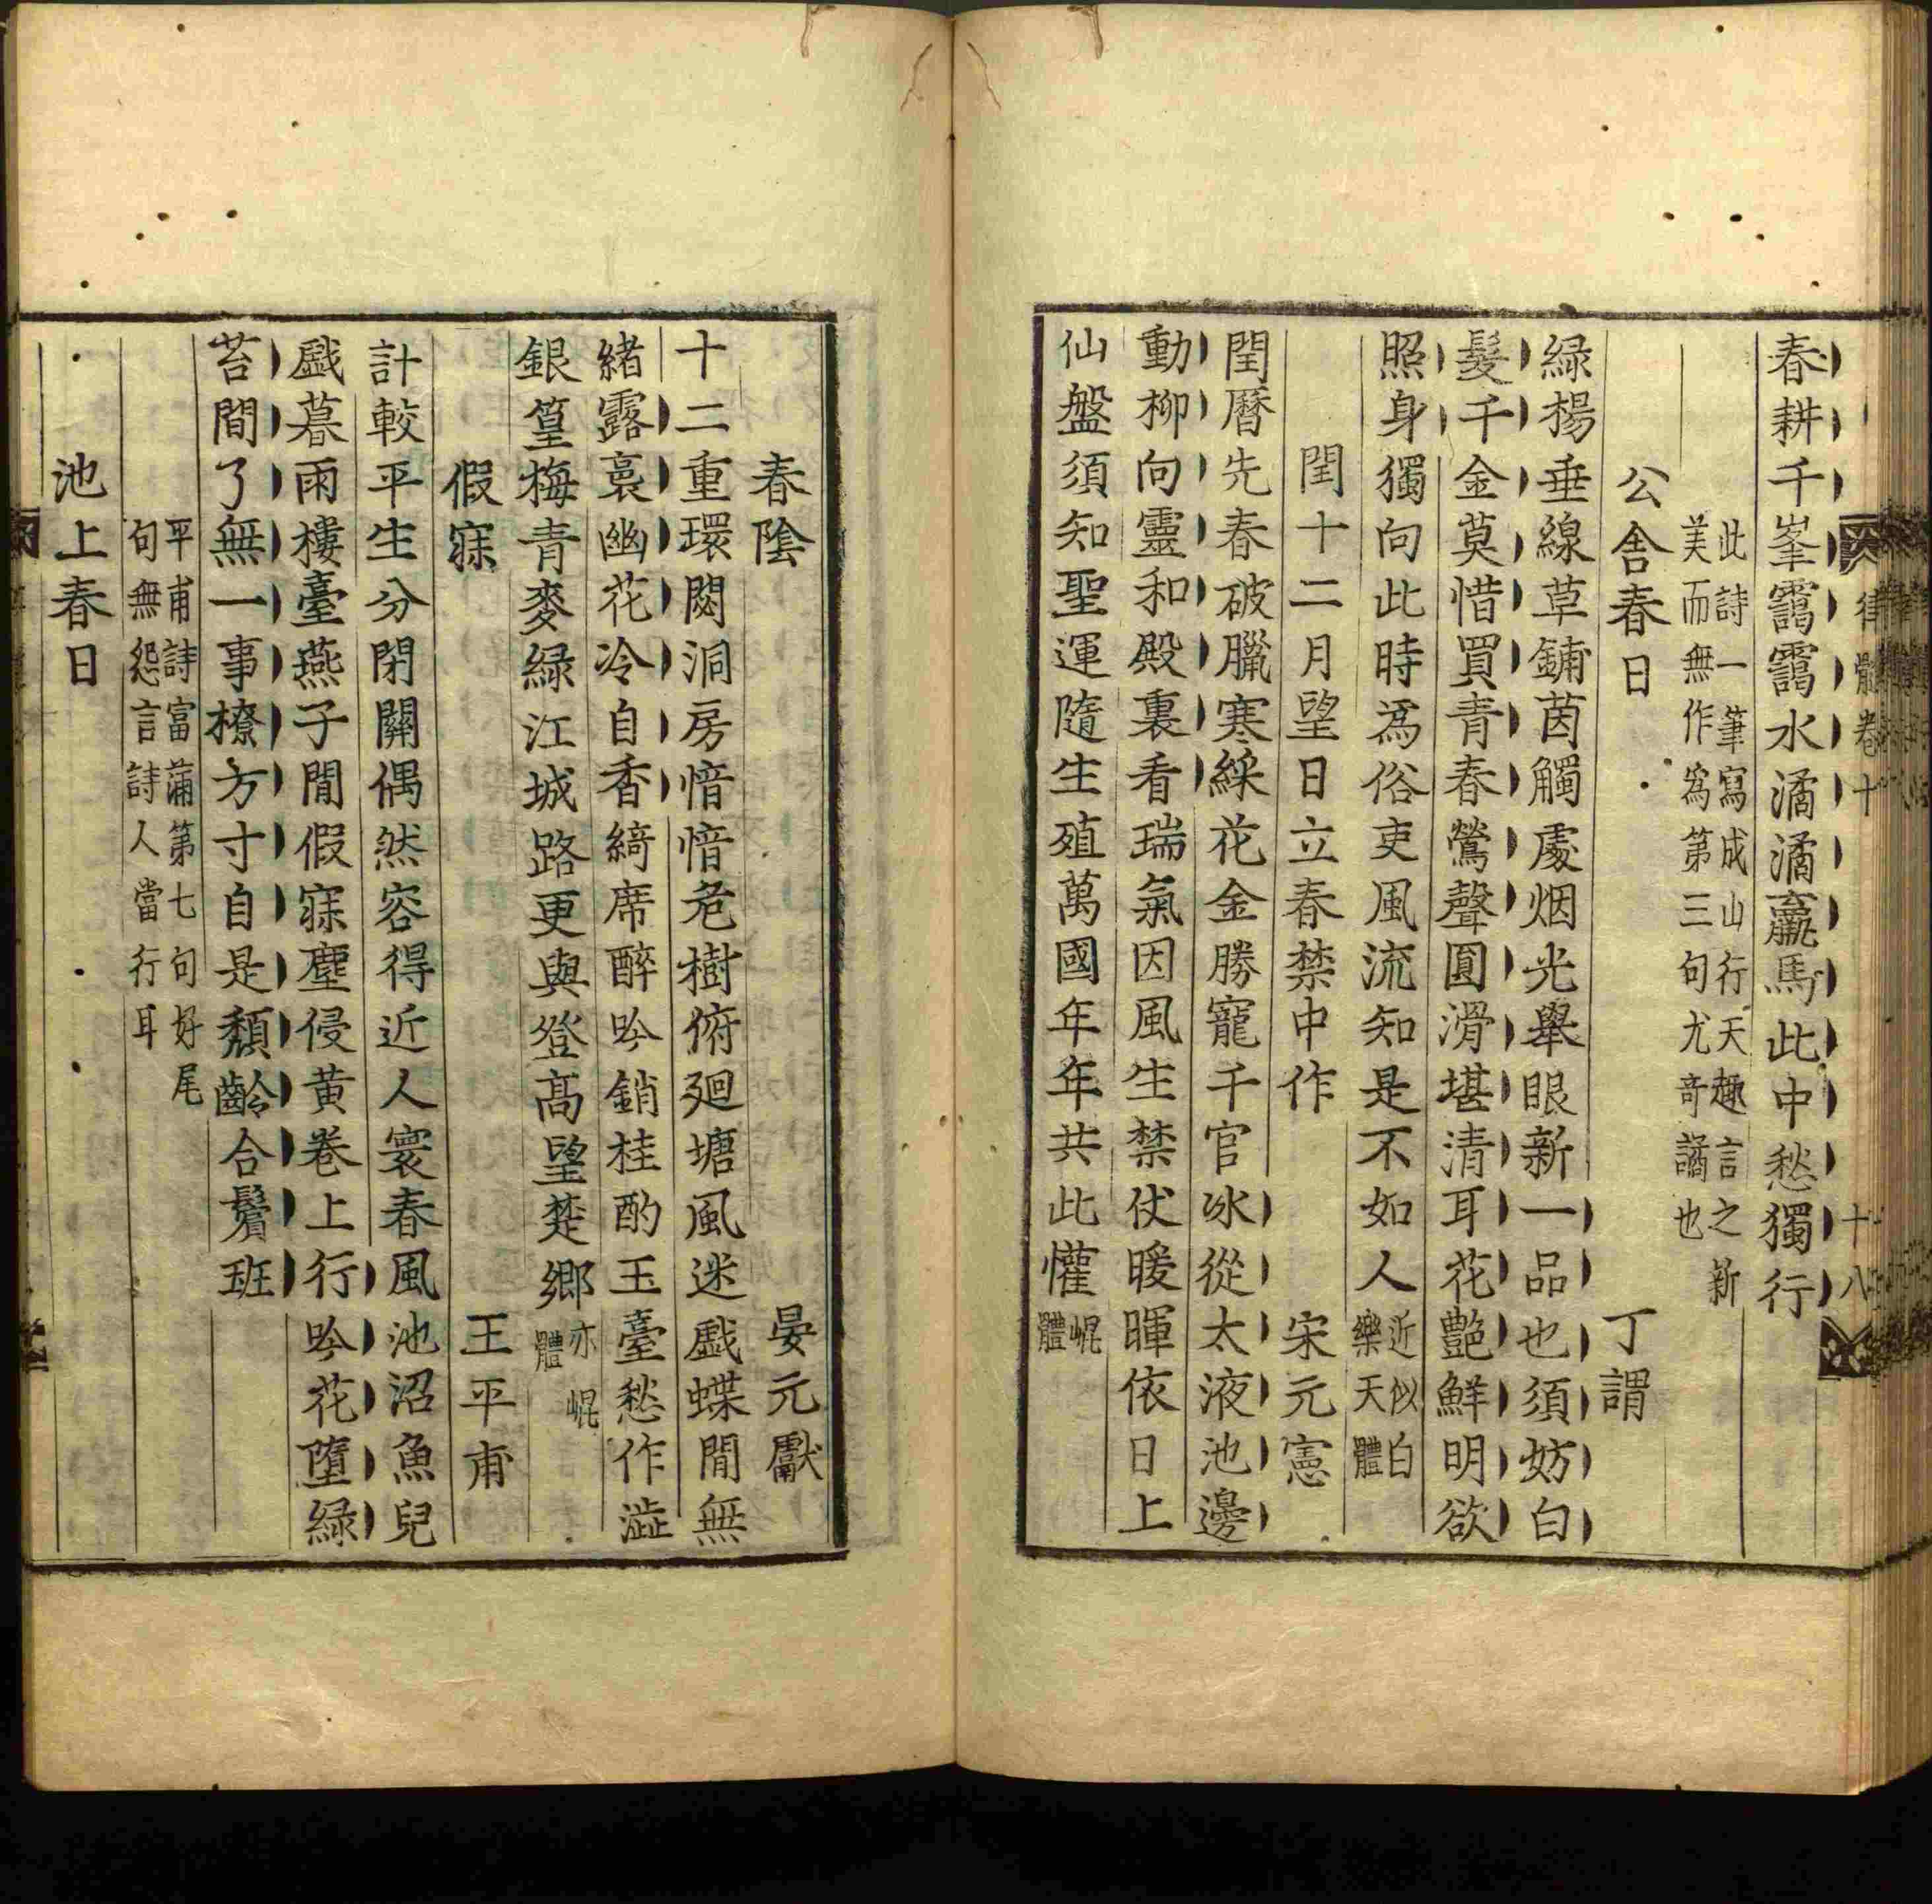 律體卷十 十八
春耕千峯靄靄水潏潏羸馬此中愁獨行
此詩一筆寫成山行天趣言之新
美而無作爲第三句尤奇譎也
公舍春日 丁謂
緑楊垂線草鋪茵觸處烟光舉眼新一品也須妨白
髮千金莫惜買青春鶯聲圓滑堪清耳花艷鮮明欲
照身獨向此時爲俗吏風流知是不如人近似白樂天體
閏十二月望日立春禁中作 宋元憲
閏曆先春破臘寒綵花金勝寵千官冰從太液池邊
動柳向靈和殿裏看瑞氣因風生禁仗暖暉依日上
仙盤須知聖運隨生殖萬國年年共此懽崐體
春陰 晏元獻
十二重環閟洞房愔愔危樹俯廻塘風迷戲蝶閒無
緒露裛幽花冷自香綺席醉吟銷桂酌玉臺愁作澁
銀篁梅青麥緑江城路更與登高望楚鄉亦崐體
假寐 王平甫
計較平生分閉關偶然容得近人寰春風池沼魚兒
戲暮雨樓臺燕子閒假寐塵侵黄卷上行吟花墮緑
苔間了無一事撩方寸自是頽齡合鬢班
平甫詩富蒲第七句好尾
句無怨言詩人當行耳
池上春日